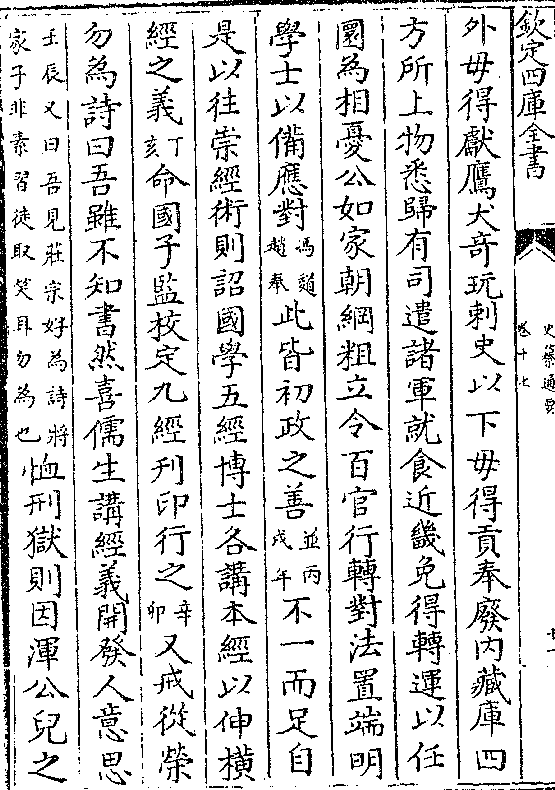 欽定四庫全書
史纂通要
卷十七
十一
外毋得獻鷹犬奇玩刺史以下毋得貢奉廢内藏庫四
方所上物悉歸有司遣諸軍就食近畿免得轉運以任
圜為相憂公如家朝綱粗立令百官行轉對法置端明
學士以備應對馮道趙奉此皆初政之善並丙戌午不一而足自
是以往崇經術則詔國學五經博士各講本經以伸橫
經之義丁亥命國子監校定九經刋印行之辛卯又戒從榮
勿為詩曰吾雖不知書然喜儒生講經義開發人意思
壬辰又曰吾見莊宗好為詩將家子非素習徒取笑耳勿為也恤刑獄則因渾公兒之